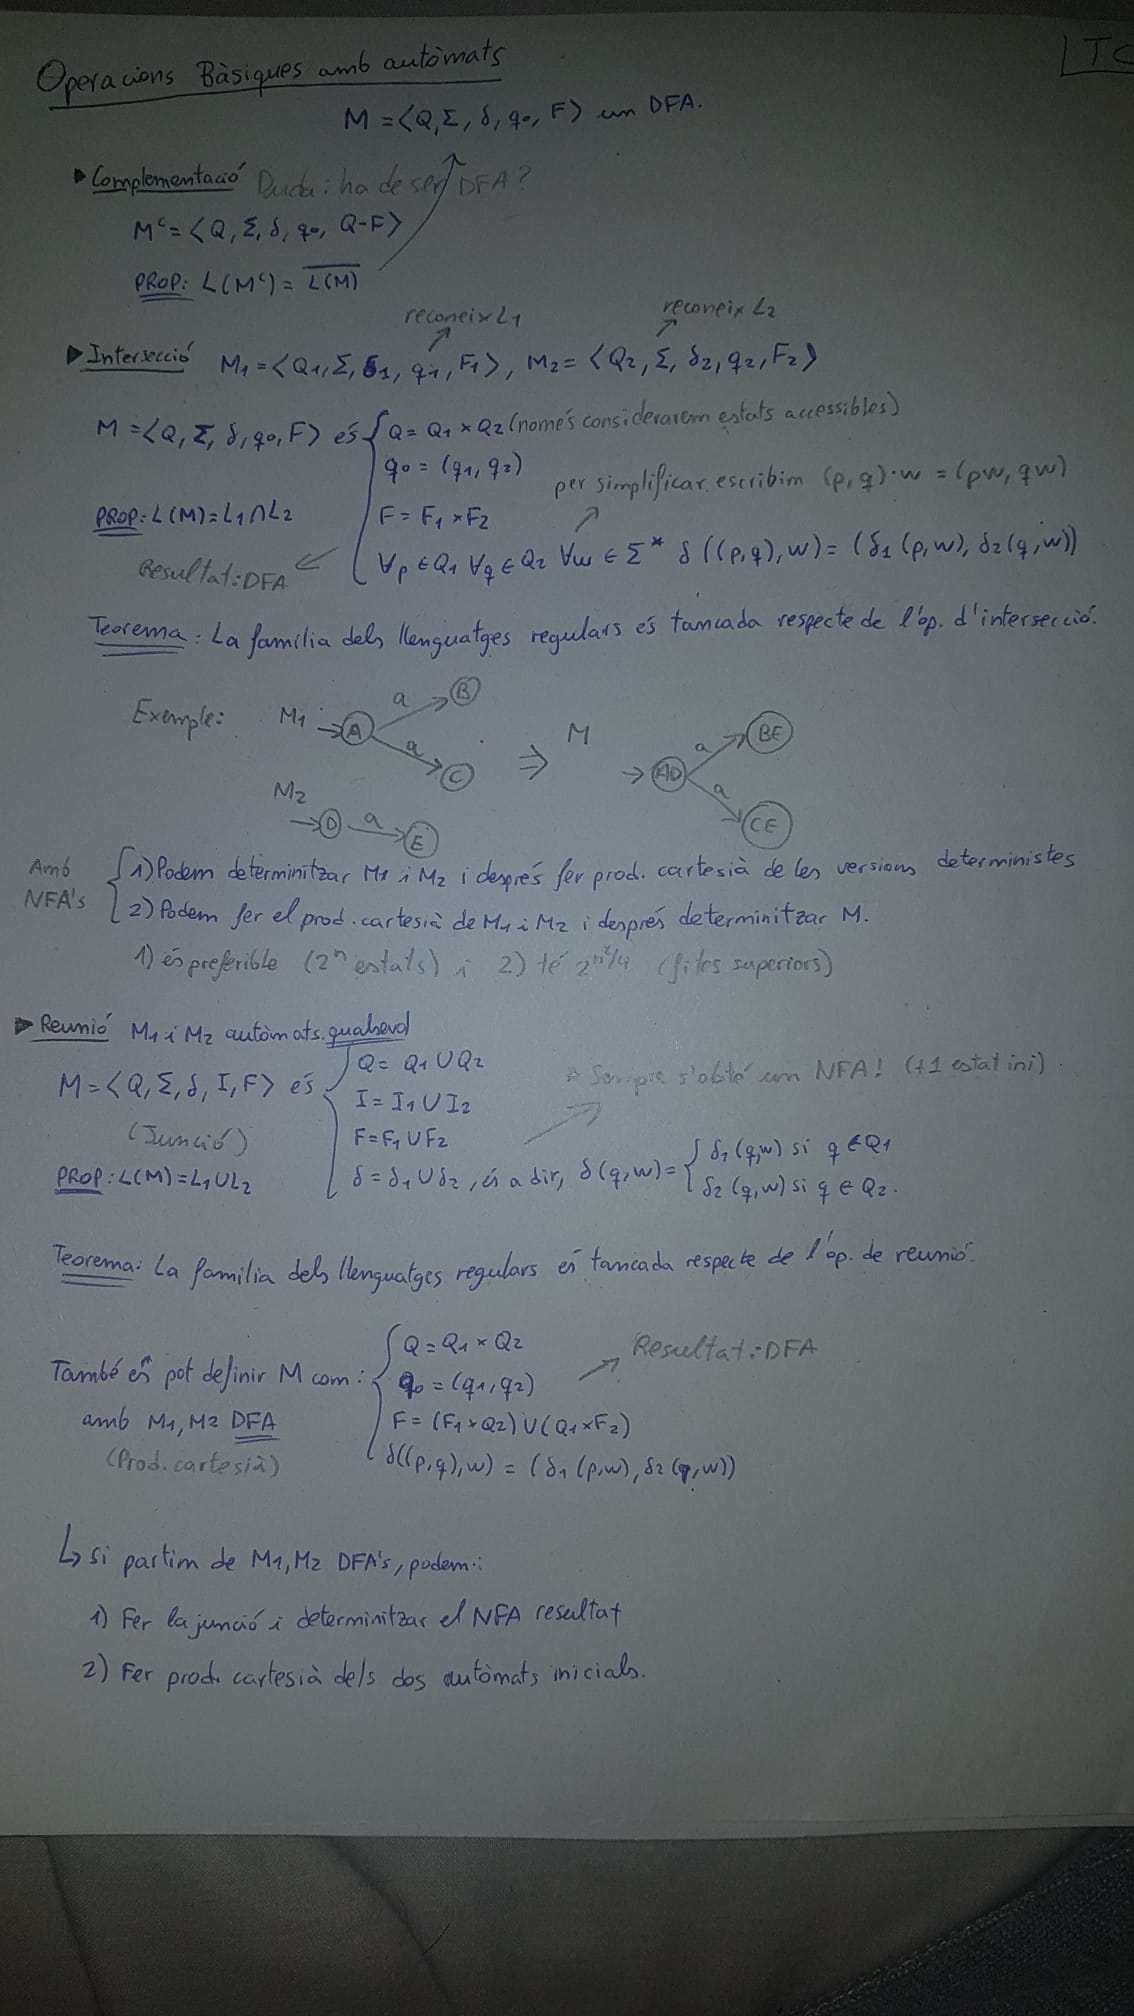 Operacions Bàsiques amb autòmats
LTC
M = <Q, Σ, δ, q0, F> un DFA.
▶ Complementació Duda: ha de ser DFA?
Mᶜ = <Q, Σ, δ, q0, Q-F>
PROP: L(Mᶜ) = \overline{L(M)}
reconeix L1
reconeix L2
▶ Intersecció M1 = <Q1, Σ, δ1, q1, F1>, M2 = <Q2, Σ, δ2, q2, F2>
M = <Q, Σ, δ, q0, F> és { Q = Q1 × Q2 (només considerarem estats accessibles)
q0 = (q1, q2)
per simplificar, escribim (p,q)·w = (pw, qw)
PROP: L(M) = L1 ∩ L2
F = F1 × F2
Resultat: DFA
∀p ∈ Q1 ∀q ∈ Q2 ∀w ∈ Σ* δ((p,q), w) = (δ1(p,w), δ2(q,w))
Teorema: La família dels llenguatges regulars és tancada respecte de l'op. d'intersecció.
Exemple: M1 → A a B
a C
⇒ M → AD a BE
a CE
M2 → D a E
Amb NFA's { 1) Podem determinitzar M1 i M2 i després fer prod. cartesià de les versions deterministes
2) Podem fer el prod. cartesià de M1 i M2 i després determinitzar M.
1) és preferible (2ⁿ estats) i 2) té 2^{n²/4} (fites superiors)
▶ Reunió M1 i M2 autòmats qualsevol
M = <Q, Σ, δ, I, F> és { Q = Q1 ∪ Q2
Sempre s'obté un NFA! (+1 estat ini)
I = I1 ∪ I2
(Junció)
F = F1 ∪ F2
PROP: L(M) = L1 ∪ L2
δ = δ1 ∪ δ2, és a dir, δ(q,w) = { δ1(q,w) si q ∈ Q1
δ2(q,w) si q ∈ Q2.
Teorema: La família dels llenguatges regulars és tancada respecte de l'op. de reunió.
També es pot definir M com: { Q = Q1 × Q2
Resultat: DFA
q0 = (q1, q2)
amb M1, M2 DFA
F = (F1 × Q2) ∪ (Q1 × F2)
(Prod. cartesià)
δ((p,q), w) = (δ1(p,w), δ2(q,w))
↳ si partim de M1, M2 DFA's, podem:
1) Fer la junció i determinitzar el NFA resultat
2) Fer prod. cartesià dels dos autòmats inicials.